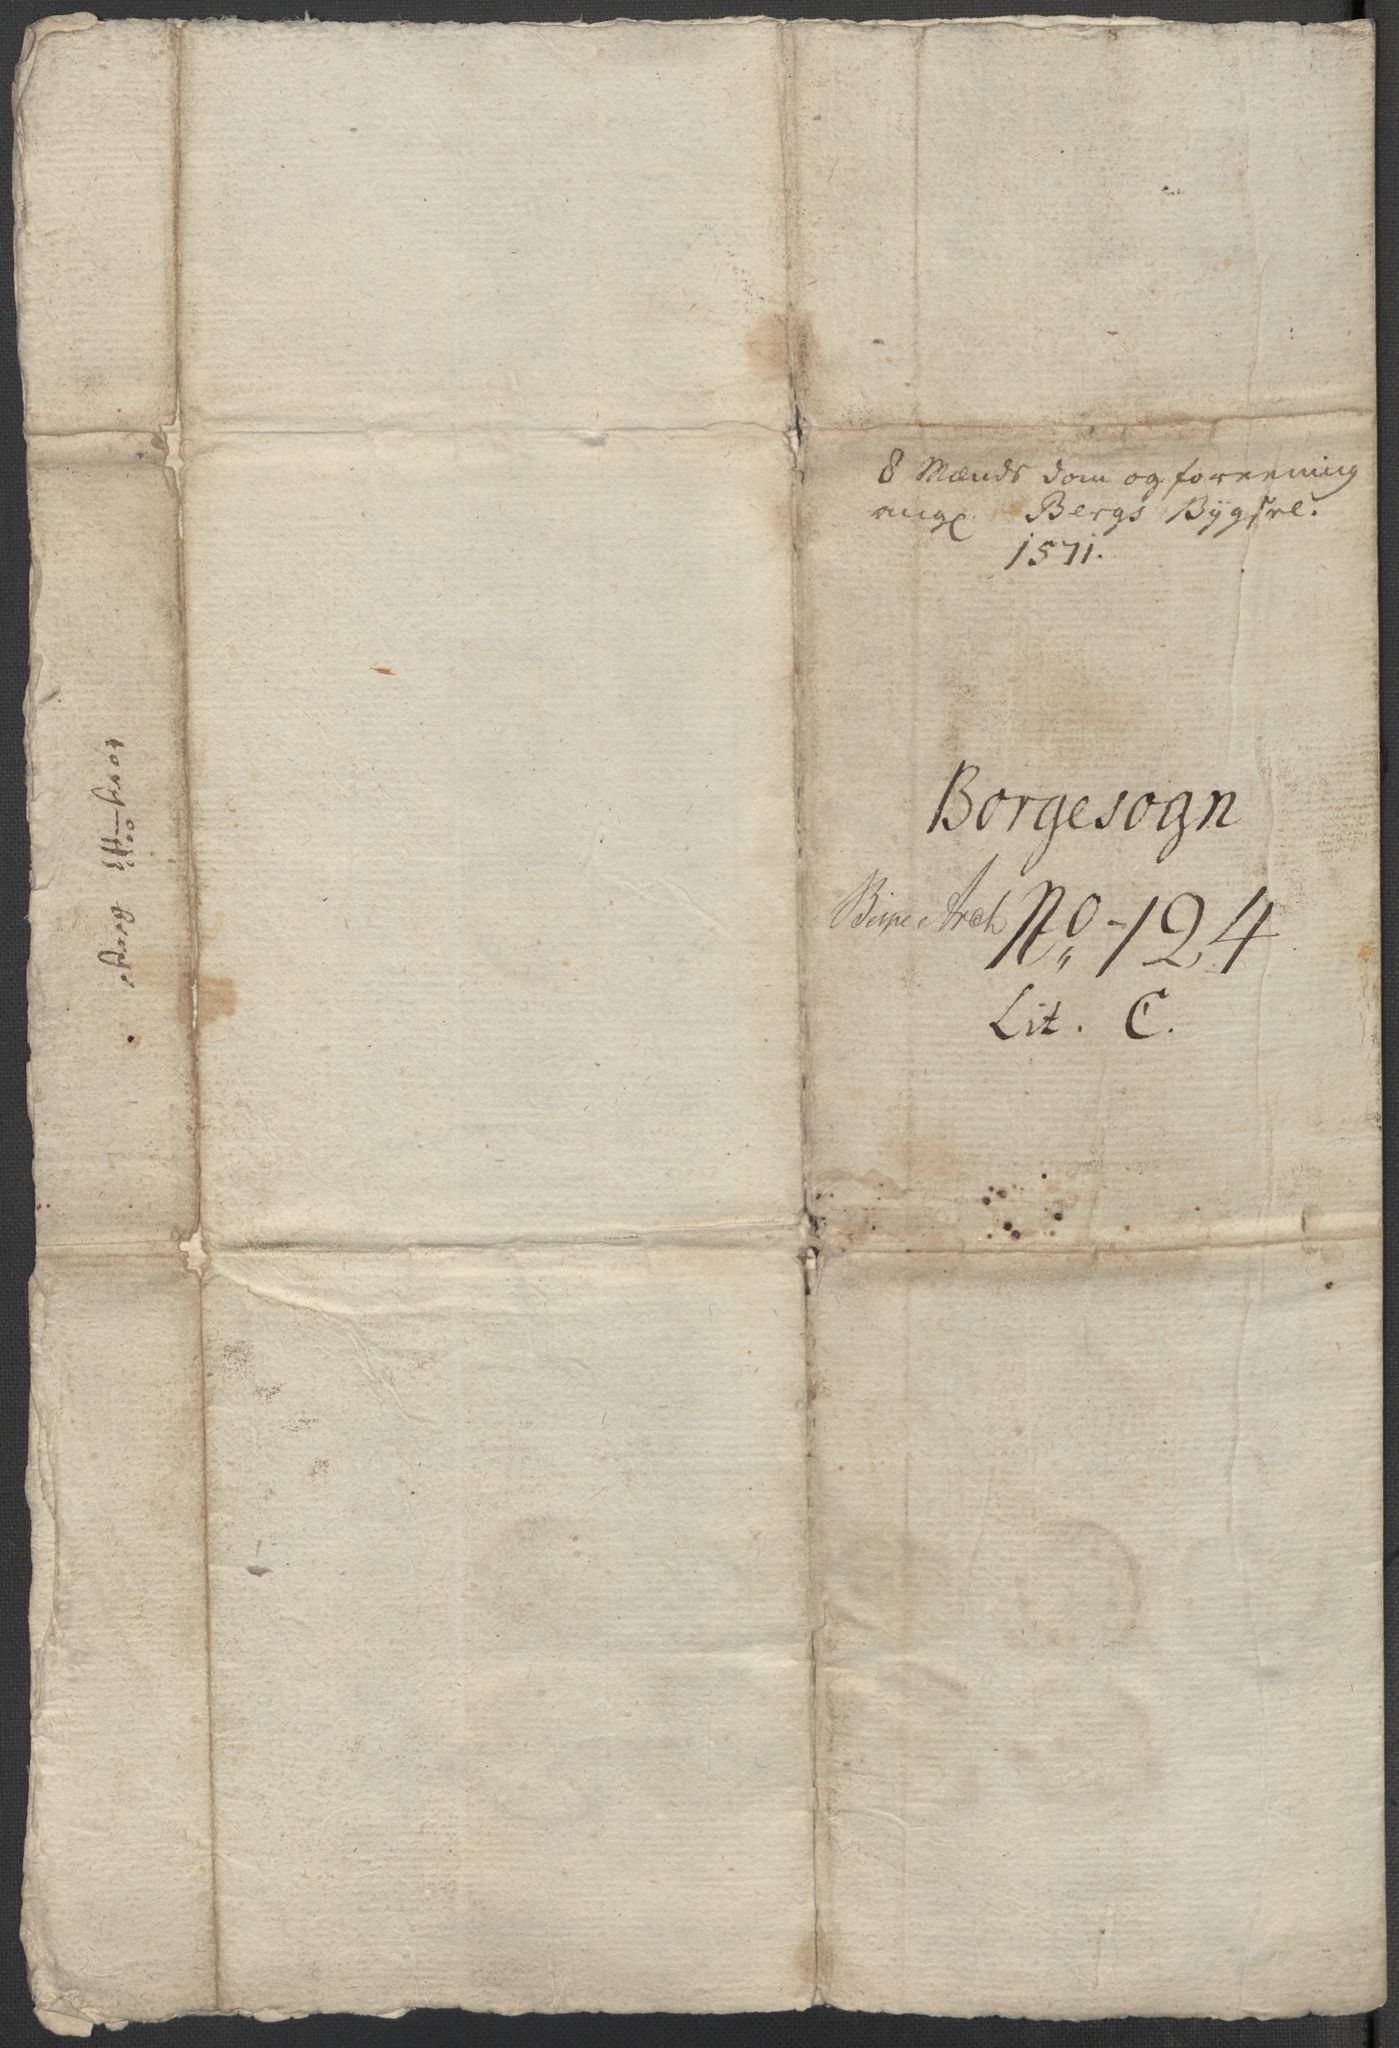 8 Mænds dom og foreening
ang. Bergs Bÿgsel.
1571.
Borgesogn
Bispe Arch No - 124
Lit. C.